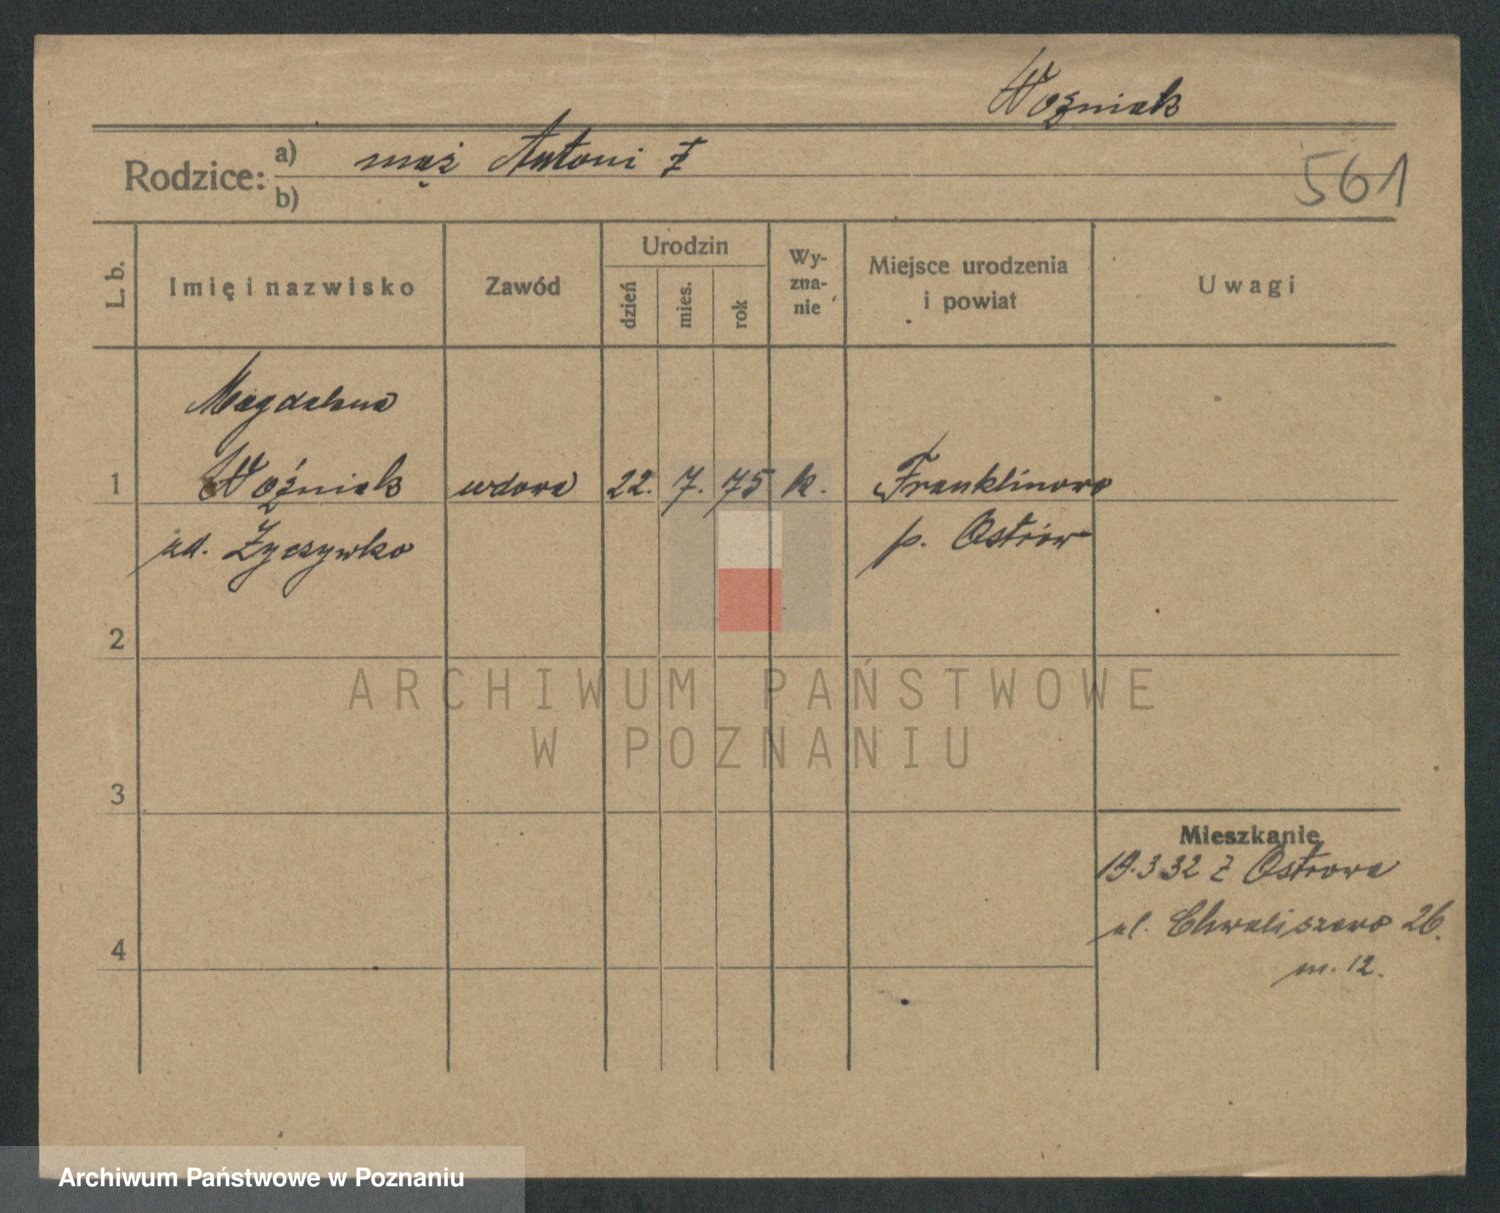 Woźniak
Rodzice: a) mąż Antoni
b)
561
L. b.
Imię i nazwisko
Zawód
Urodzin
dzień
mies.
rok
Wy-
zna-
nie
Miejsce urodzenia
i powiat
Uwagi
Magdalena
1 Woźniak wdowa 22. 7. 75 k. Franklinowo
ud. Życzywko p. Ostrów
2
3
4
Mieszkanie
19.3 32 z Ostrowa
ul. Chwaliszewo 26.
m. 12.
ARCHIWUM PAŃSTWOWE
W POZNANIU
Archiwum Państwowe w Poznaniu